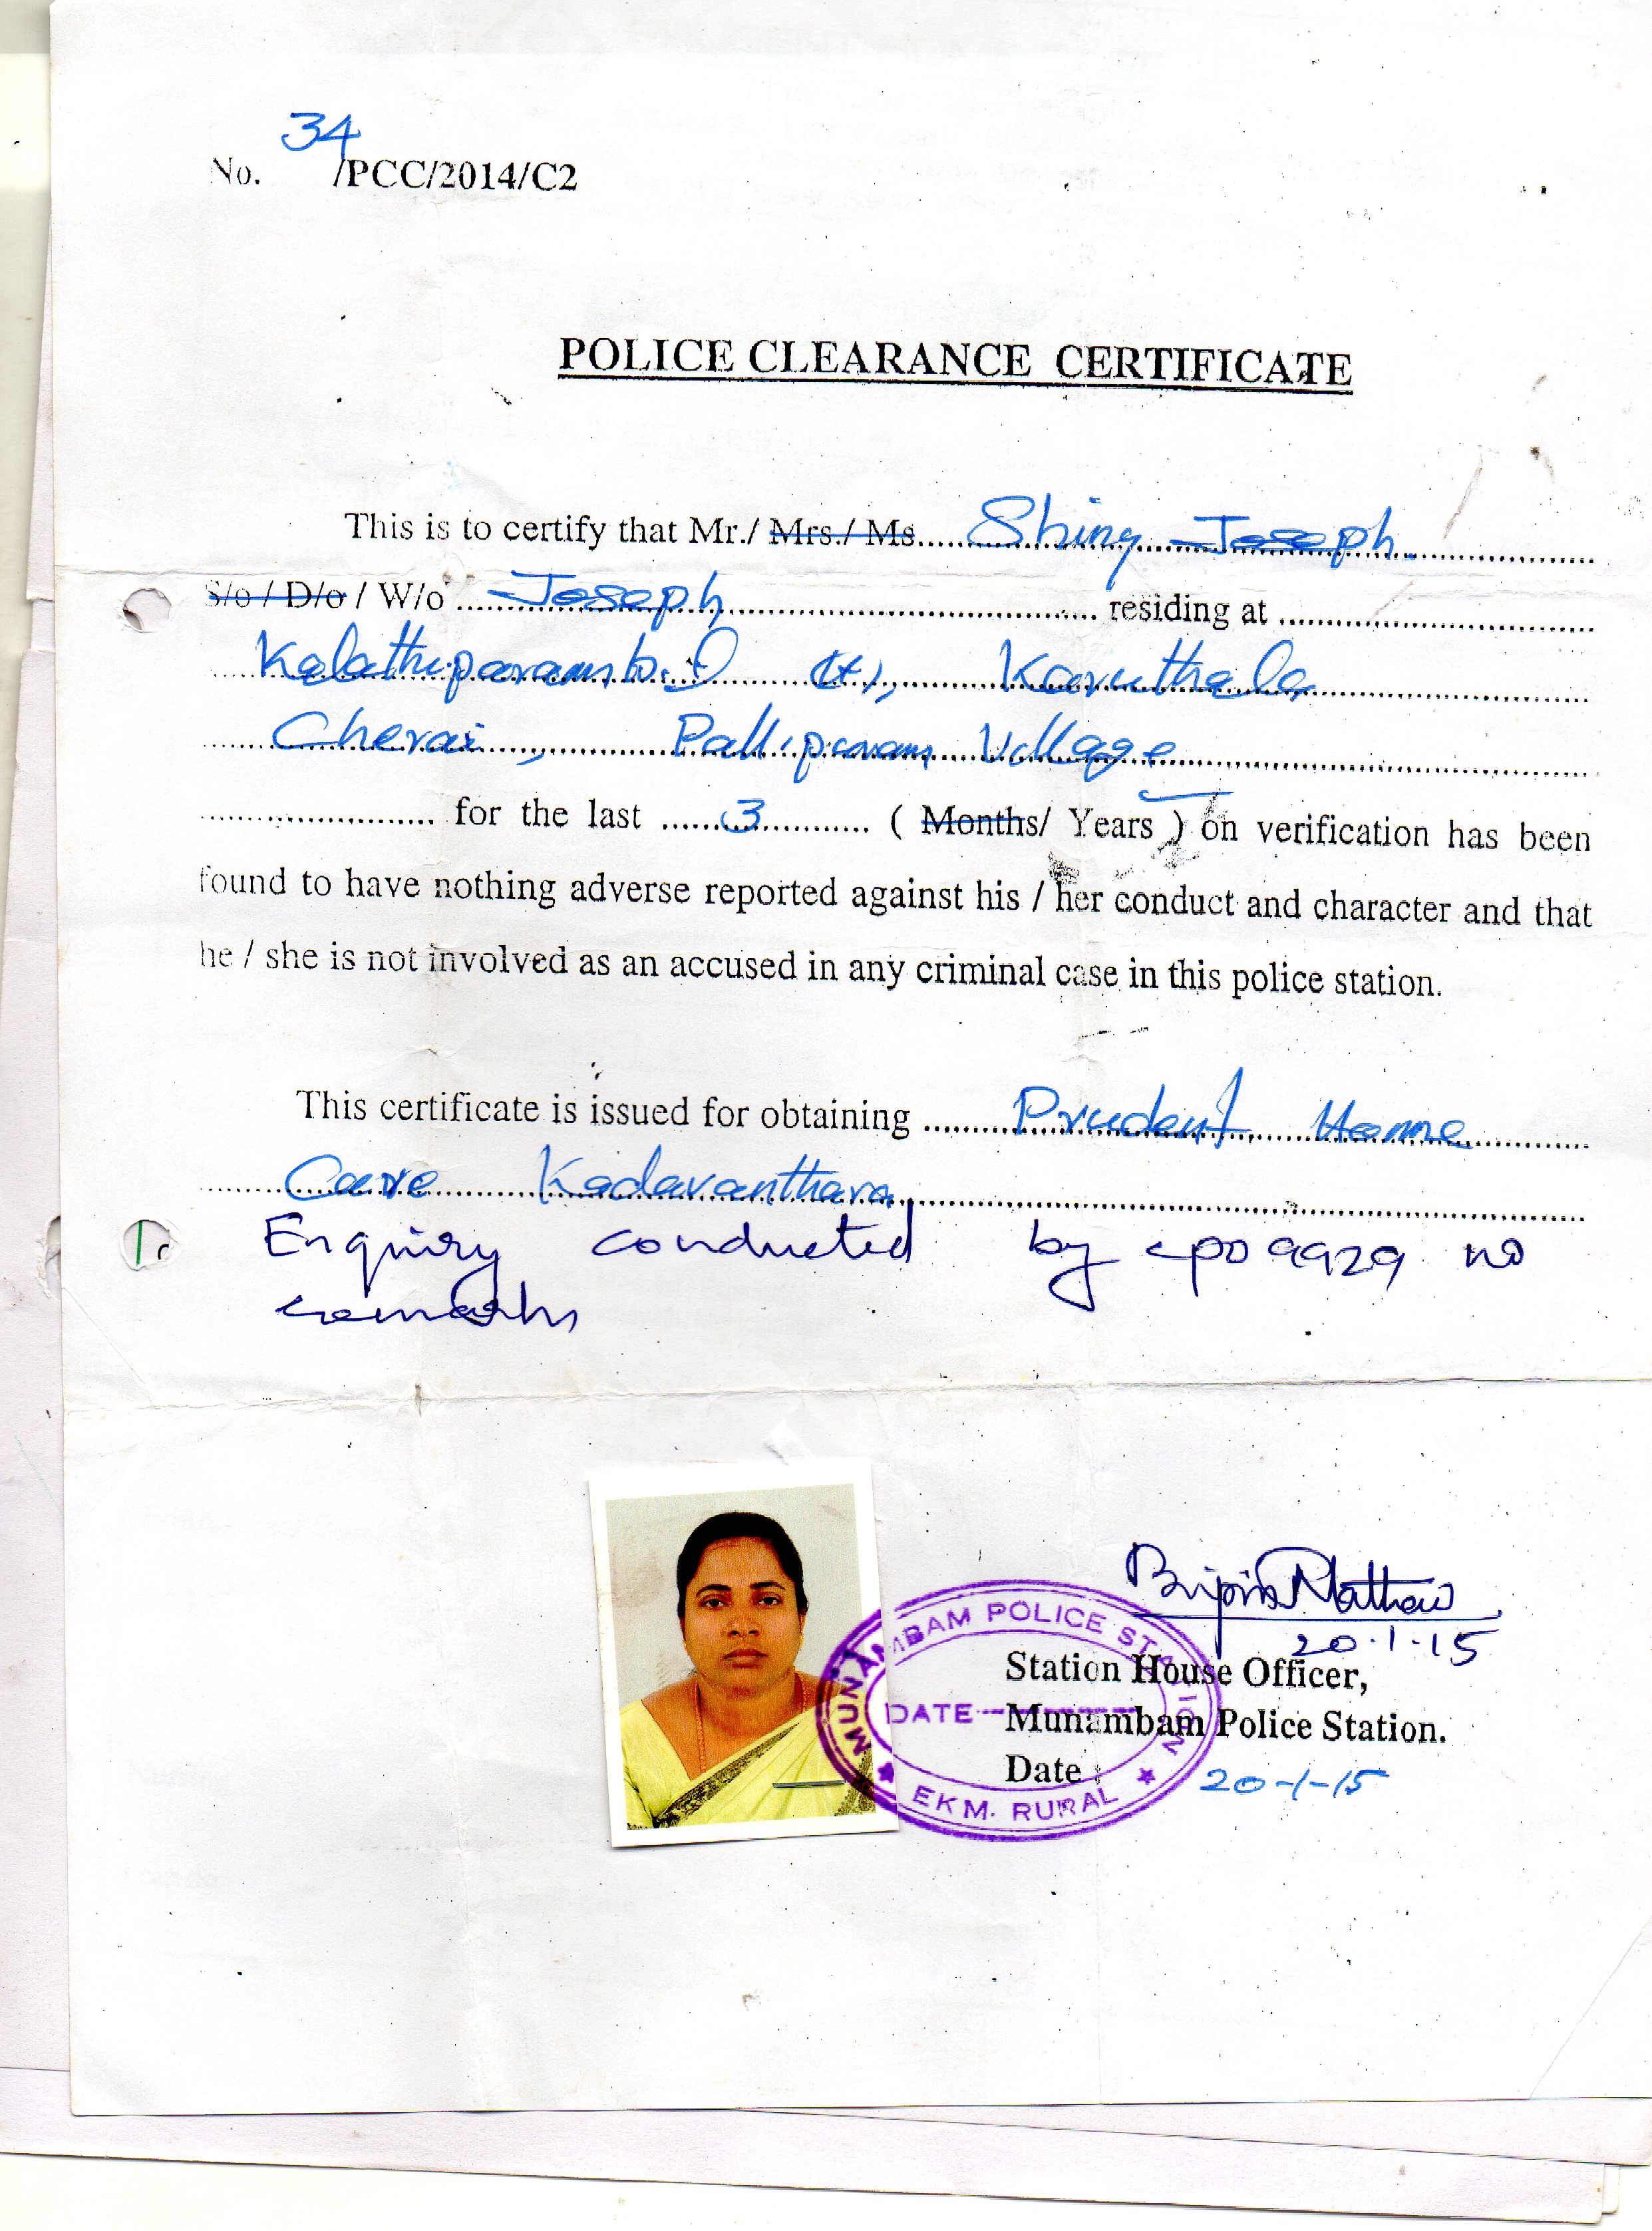 No. 34/PCC/2014/C2
POLICE CLEARANCE CERTIFICATE
This is to certify that Mr./ Mrs./ Ms. Shiny Joseph
S/o / D/o / W/o Joseph residing at
Kalathiparambil (H), Karuthala
Cherai, Pallipuram Village
for the last 3 ( Months/ Years ) on verification has been
found to have nothing adverse reported against his / her conduct and character and that
he / she is not involved as an accused in any criminal case in this police station.
This certificate is issued for obtaining Prudent Home
Care Kadavanthara
Enquiry conducted by cpo 9929 no
remarks
20.1.15
Station House Officer,
Munambam Police Station.
Date : 20-1-15
MUNAMBAM POLICE STATION
DATE
EKM. RURAL